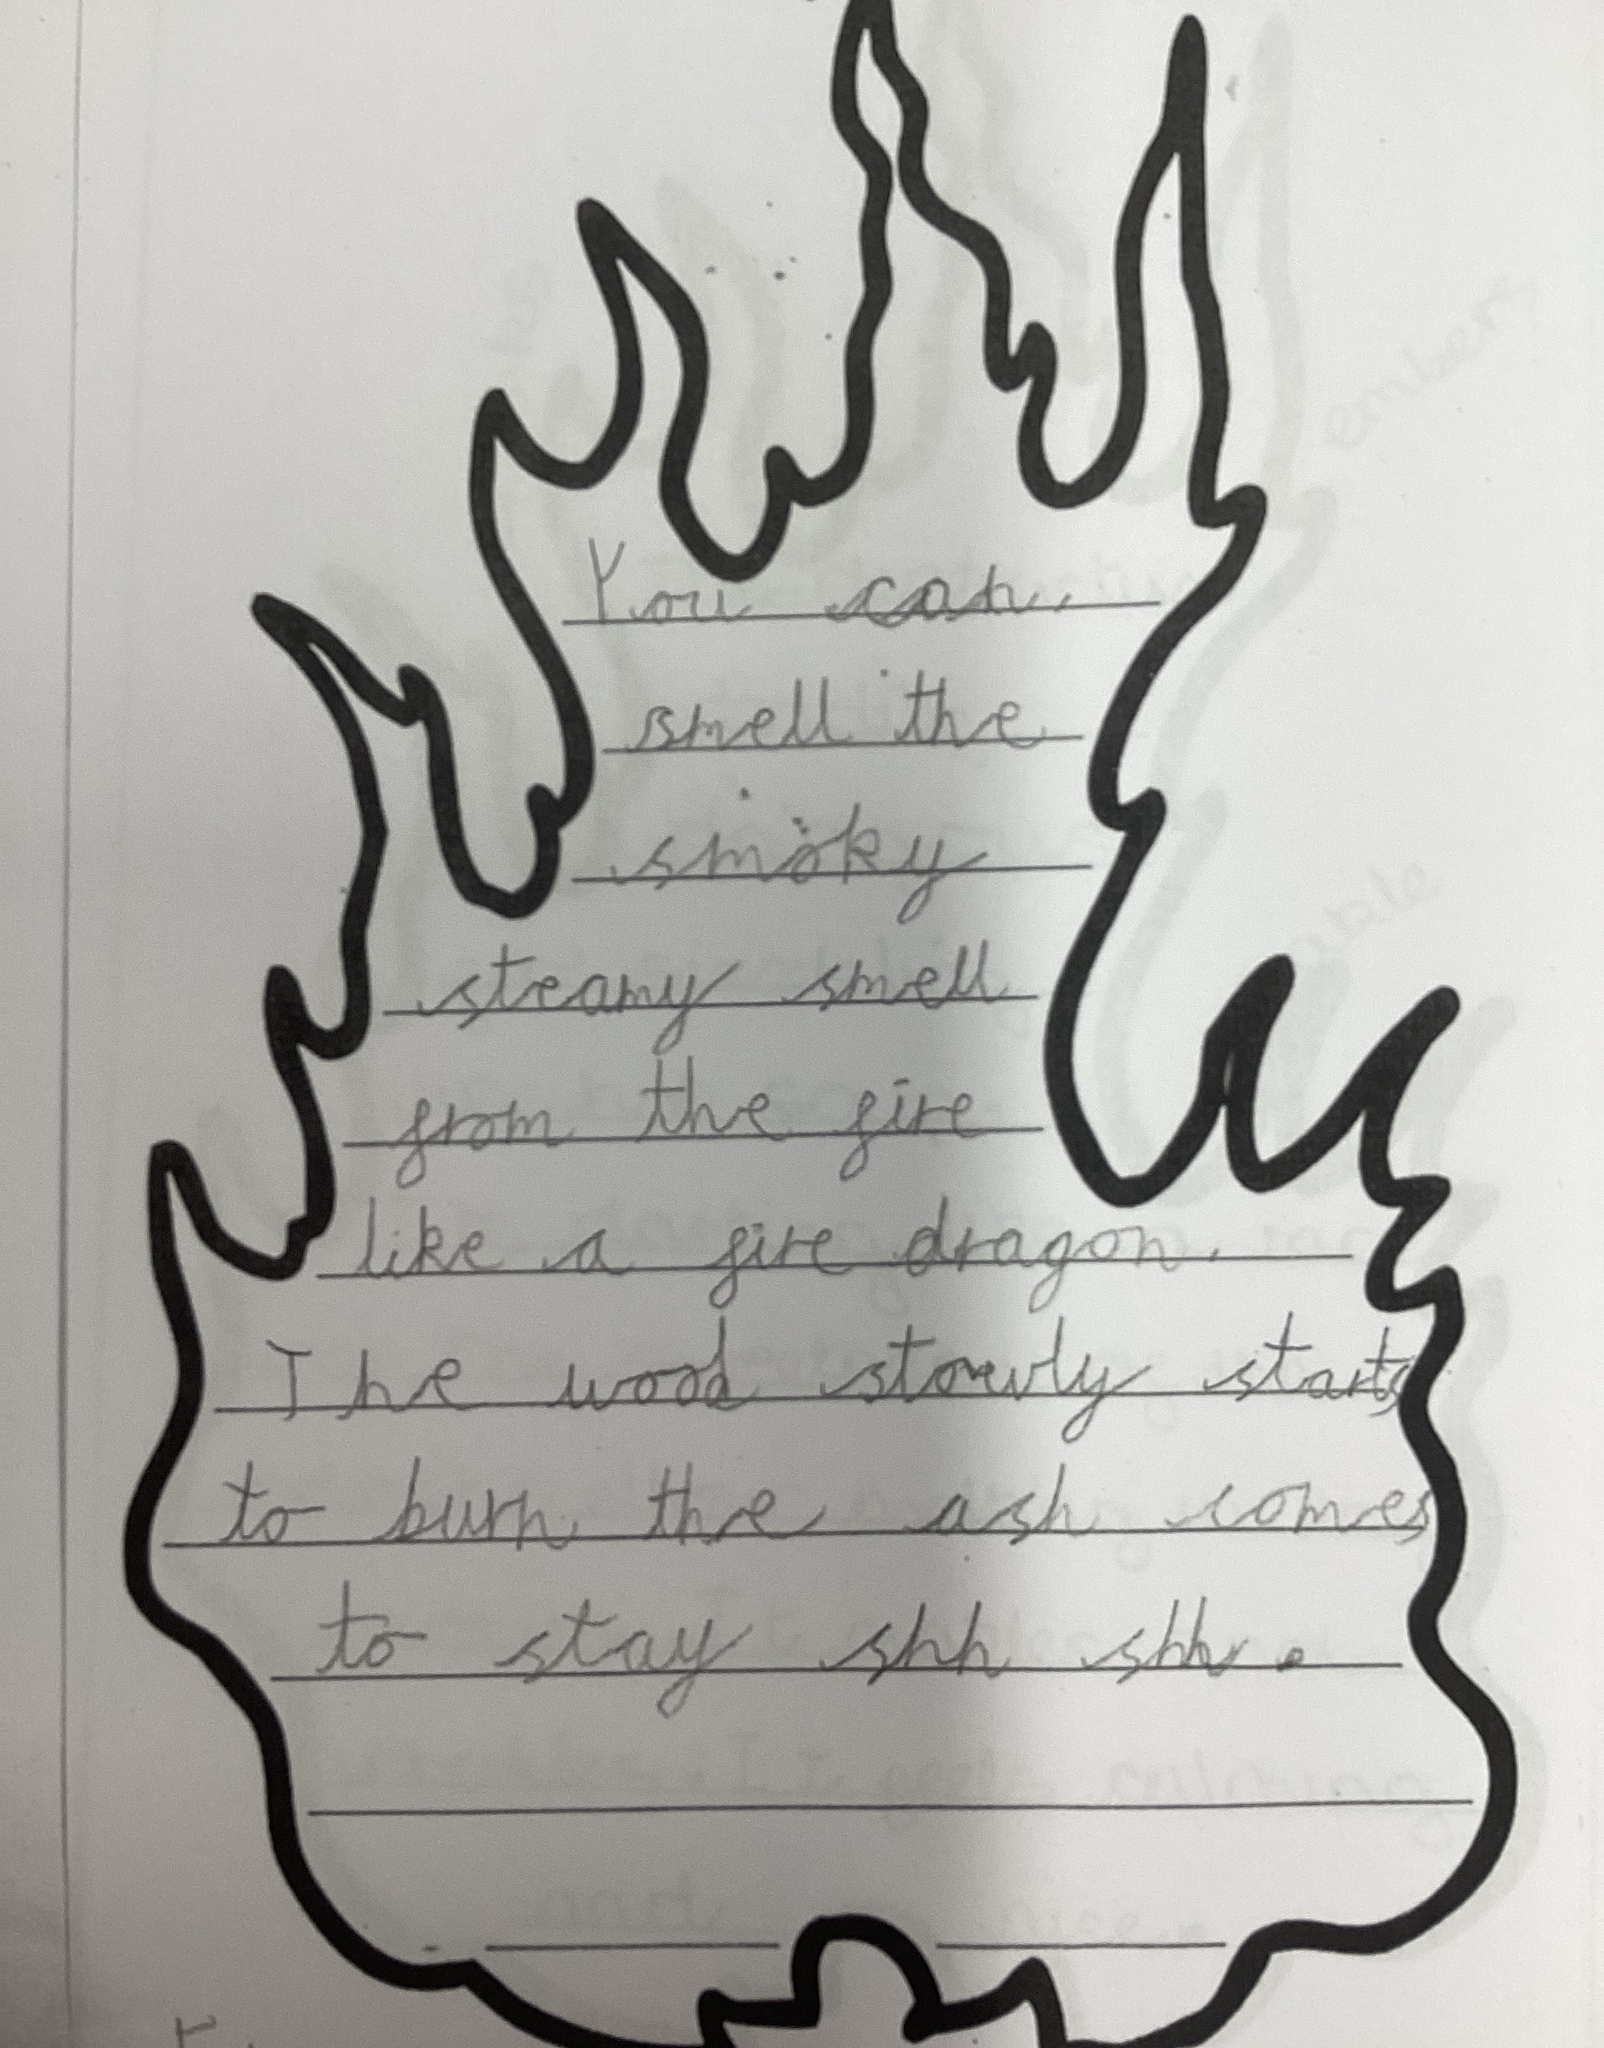 You can
smell the
smoky
steamy smell
from the fire
like a fire dragon.
The wood slowly starts
to burn the ash comes
to stay shh shh.